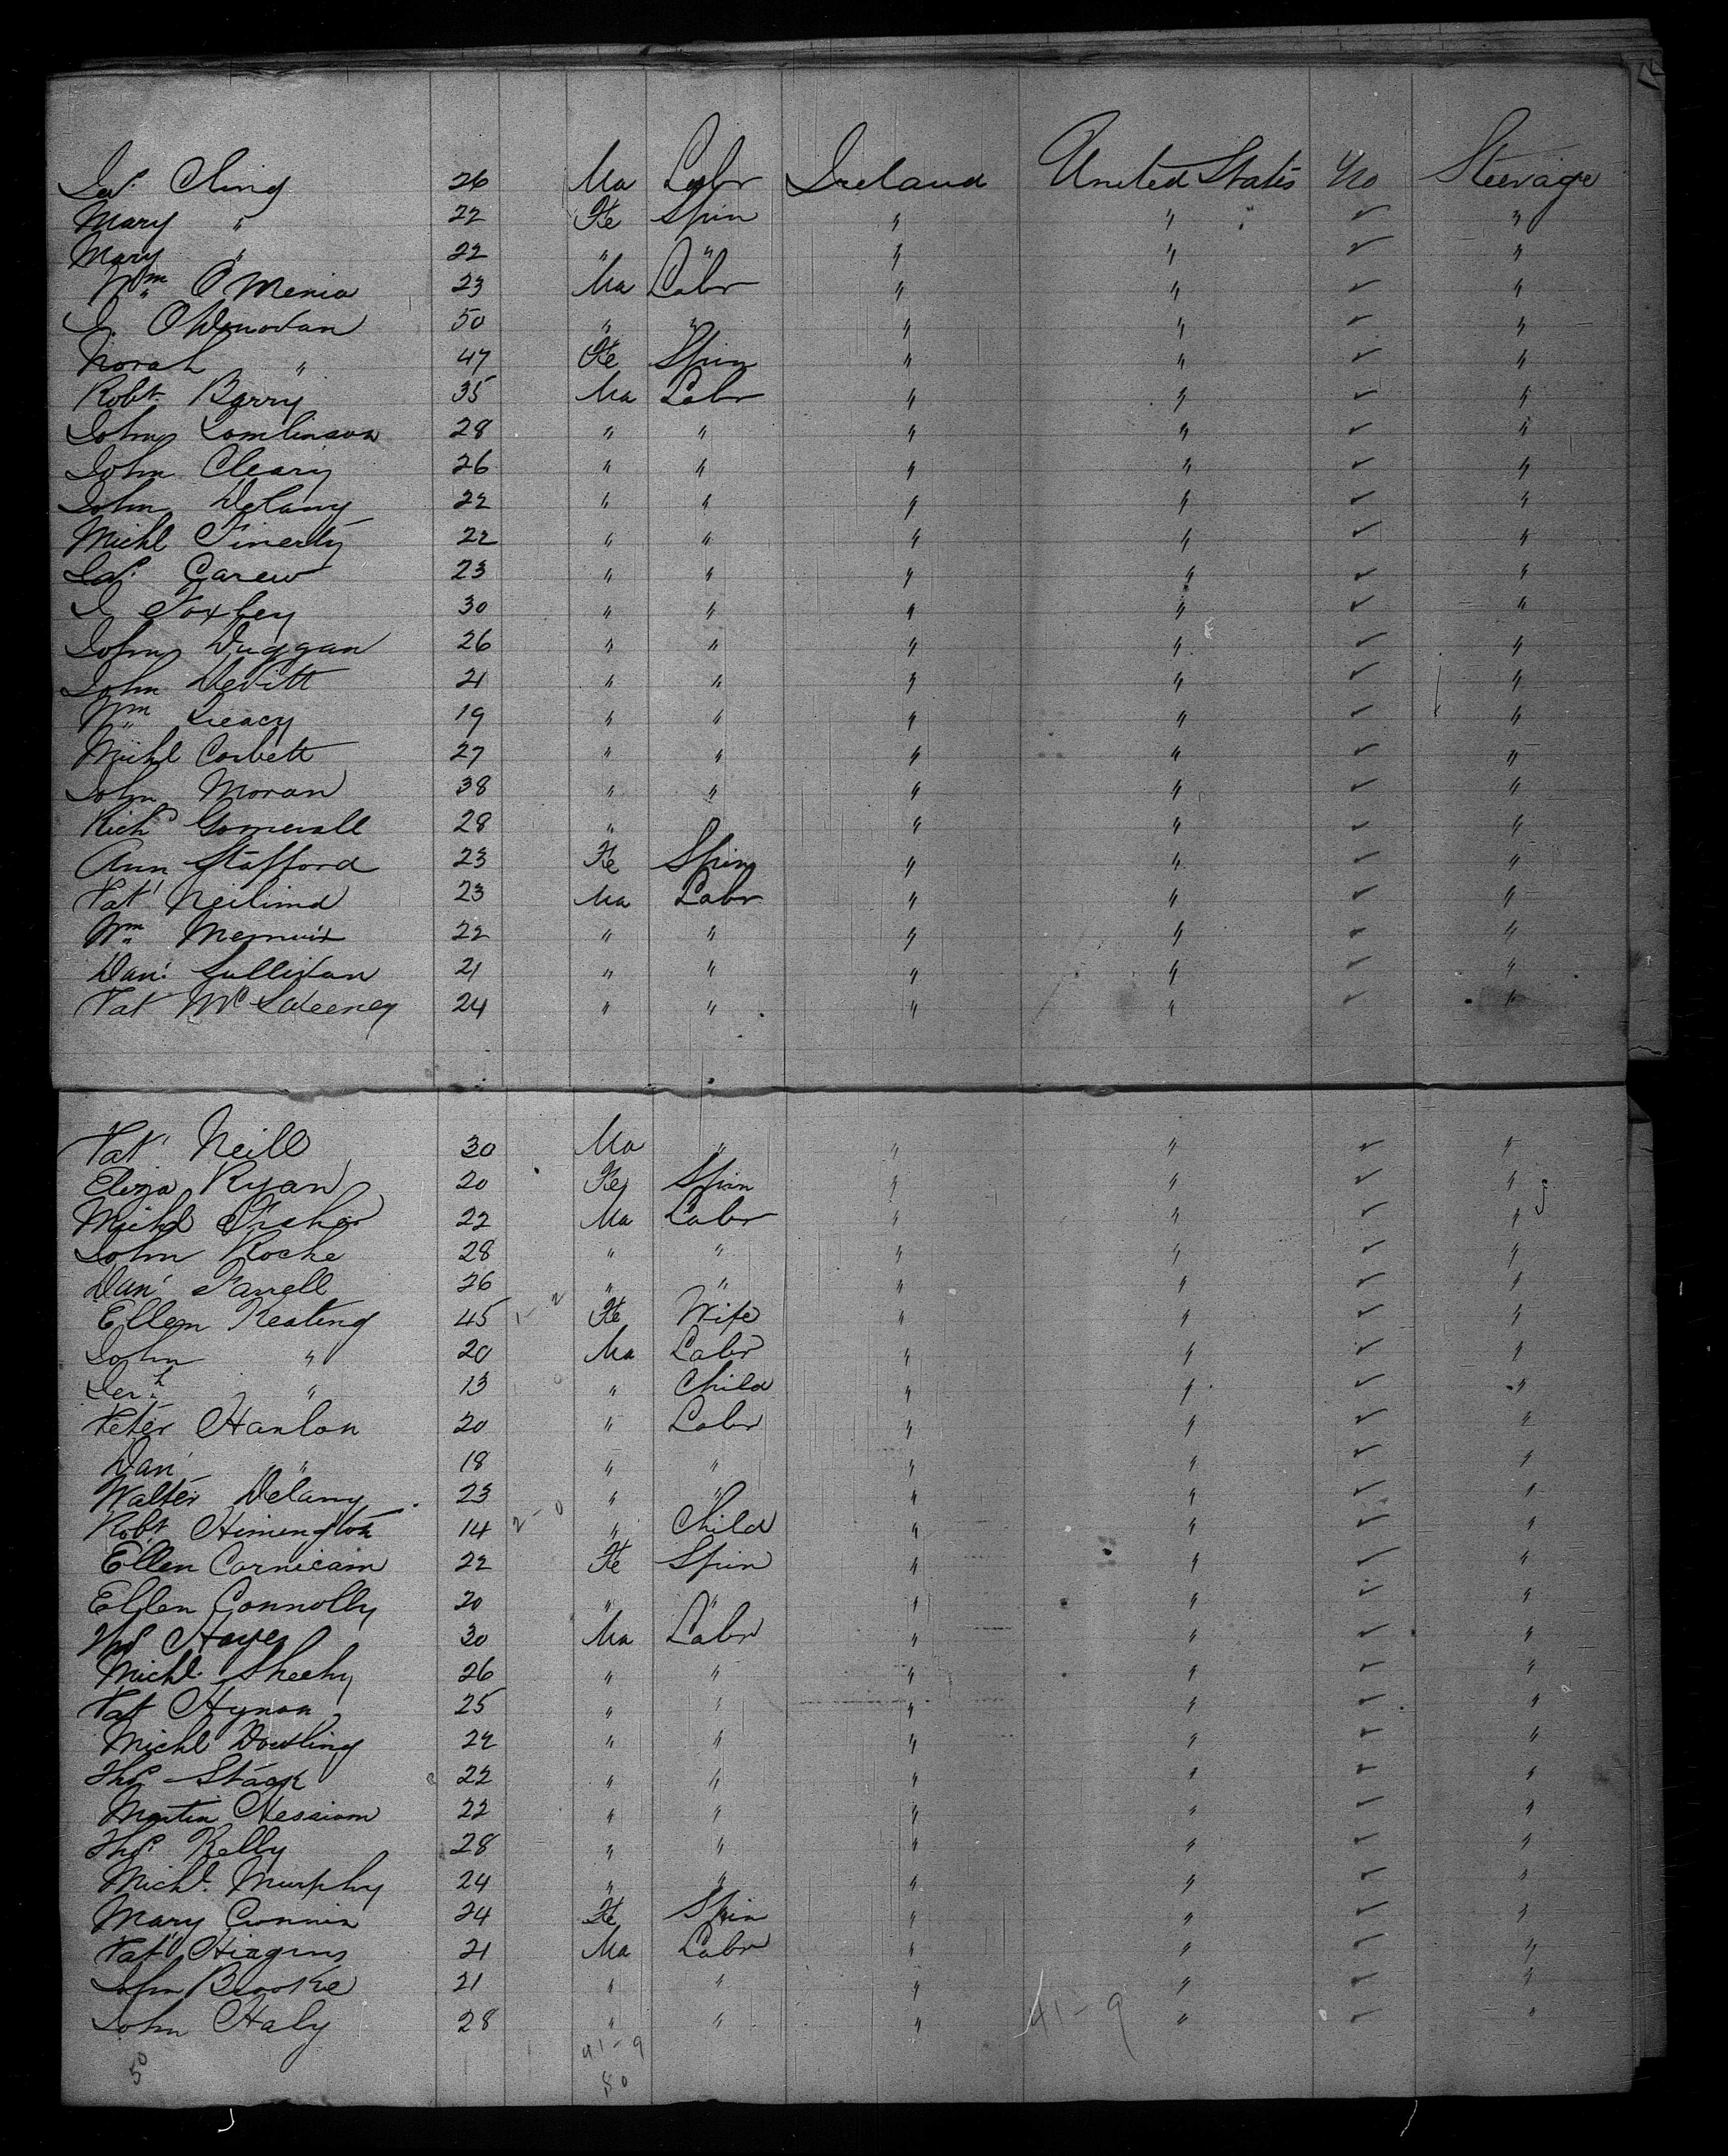 Jas. Cling 26 Ma Labr Ireland United States No Steerage
Mary " 22 Fe Spin " " ✓ "
Mary " 22 " " " " ✓ "
Wm O'Menia 23 Ma Labr " " ✓ "
J. O'Donovan 50 " " " " ✓ "
Norah " 47 Fe Spin " " ✓ "
Robt. Barry 35 Ma Labr " " ✓ "
John Tomlinson 28 " " " " ✓ "
John Cleary 26 " " " " ✓ "
John Delany 22 " " " " ✓ "
Michl Finerty 22 " " " " ✓ "
Jas. Carew 23 " " " " ✓ "
J Foxley 30 " " " " ✓ "
John Duggan 26 " " " " ✓ "
John Devitt 21 " " " " ✓ "
Wm Treacy 19 " " " " ✓ "
Michl Corbett 27 " " " " ✓ "
John Moran 38 " " " " ✓ "
Richd Gomerall 28 " " " " ✓ "
Ann Stafford 23 Fe Spin " " ✓ "
Pat Neilind 23 Ma Labr " " ✓ "
Wm 22 " " " " ✓ "
Dan. Sullivan 21 " " " " ✓ "
Pat McSweeney 24 " " " " ✓ "
Pat Neill 30 Ma " " " ✓ "
Eliza Ryan 20 Fe Spin " " ✓ "
Michl Fisher 22 Ma Labr " " ✓ "
John Roche 28 " " " " ✓ "
Dan Farrell 26 " " " " ✓ "
Ellen Keating 45 Fe Wife " " ✓ "
John " 20 Ma Labr " " ✓ "
Jerh " 13 " Child " " ✓ "
Peter Hanlon 20 " Labr " " ✓ "
Dan " 18 " " " " ✓ "
Walter Delany 23 " " " " ✓ "
Robt Himington 14 2-0 " Child " " ✓ "
Ellen Cornicain 22 Fe Spin " " ✓ "
Ellen Connolly 20 " " " " ✓ "
Thos Hayes 30 Ma Labr " " ✓ "
Michl. Sheehy 26 " " " " ✓ "
Pat Hynon 25 " " " " ✓ "
Michl Dowling 22 " " " " ✓ "
Thos Stack 22 " " " " ✓ "
Martin Nessiom 22 " " " " ✓ "
Thos. Kelly 28 " " " " ✓ "
Michl. Murphy 24 " " " " ✓ "
Mary Cronnin 24 Fe Spin " " ✓ "
Pat Higgins 21 Ma Labr " " ✓ "
John Brooke 21 " " " " ✓ "
John Haly 28 " " " " ✓ "
41-9 41-9
50 50